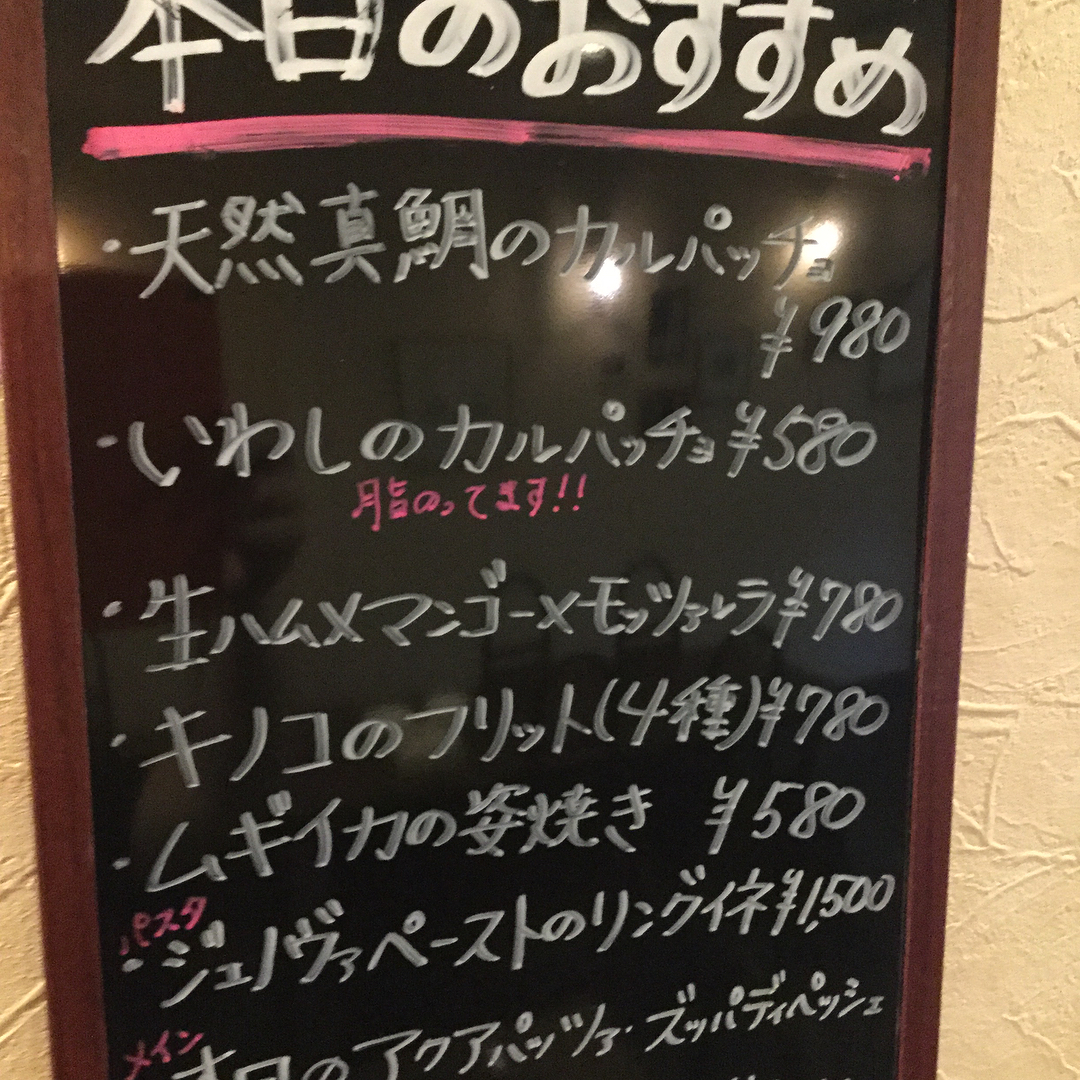 本日のおすすめ
・天然真鯛のカルパッチョ
¥980
・いわしのカルパッチョ ¥580
脂のってます!!
・生ハム×マンゴー×モッツァレラ ¥780
・キノコのフリット(4種) ¥780
・ムギイカの姿焼き ¥580
パスタ
・ジェノヴァペーストのリングイネ ¥1,500
メイン
本日のアクアパッツァ・ズッパディペッシェ